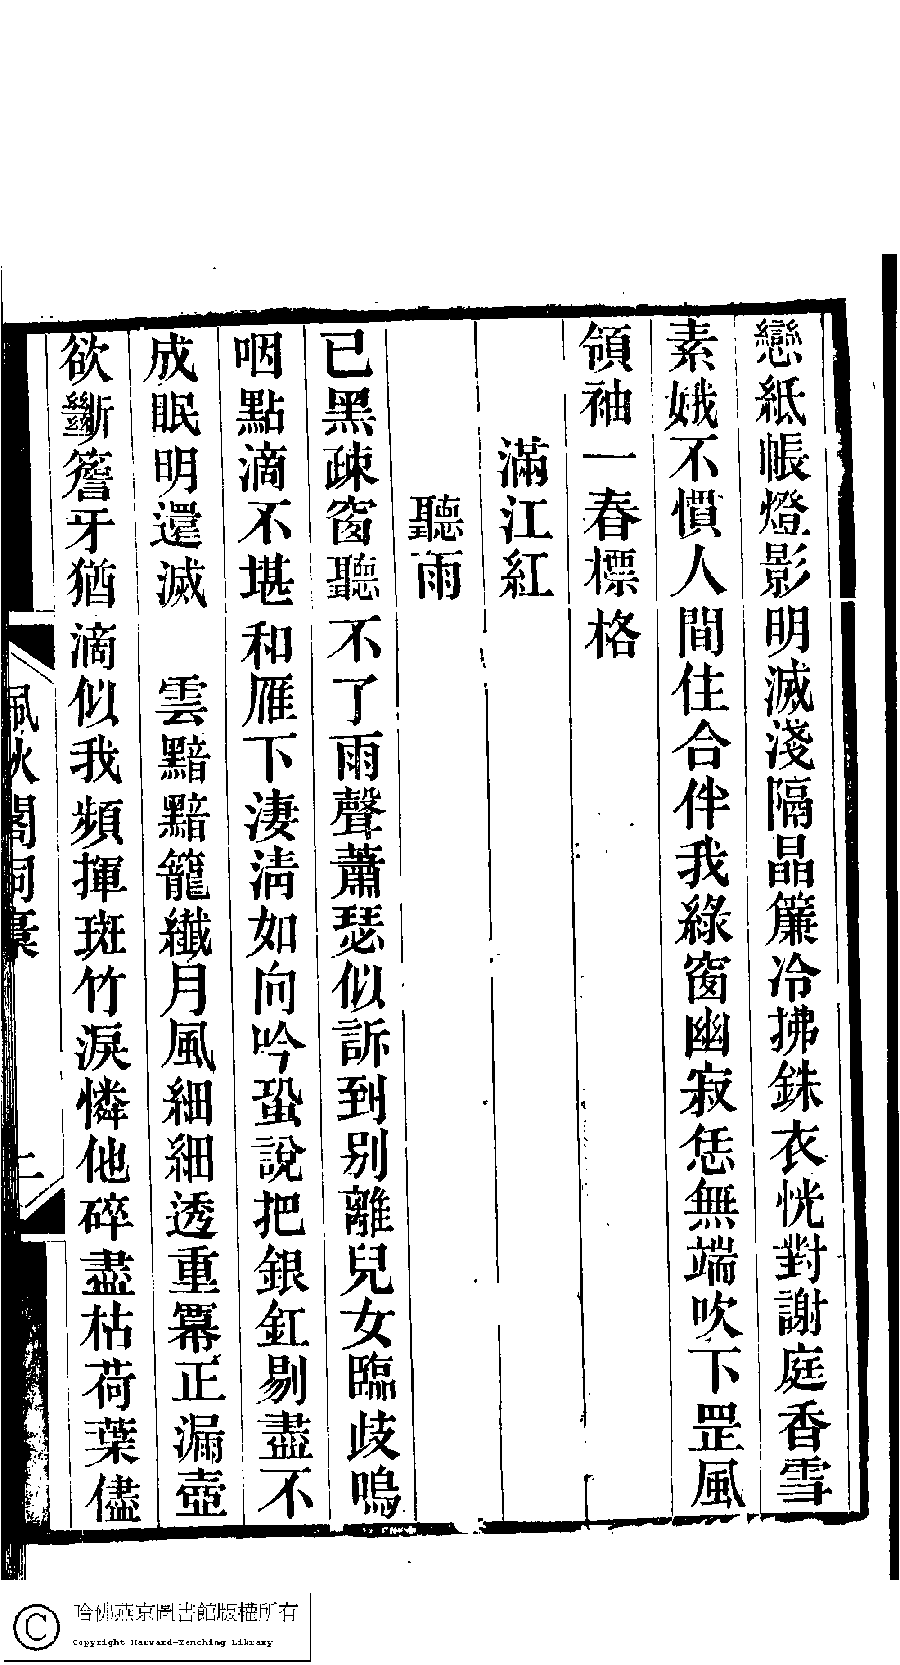 戀紙帳燈影明滅淺隔晶簾冷拂銖衣恍對謝庭香雪
素娥不慣人間住合伴我綠窗幽寂恁無端吹下罡風
領袖一春標格
滿江紅
聽雨
已黑疎窗聽不了雨聲蕭瑟似訴到別離兒女臨歧嗚
咽點滴不堪和雁下淒淸如向吟蛩說把銀釭剔盡不
成眠明還滅　雲黯黯籠纖月風細細透重冪正漏壺
欲斷簷牙猶滴似我頻揮斑竹淚憐他碎盡枯荷葉儘
閣詞
哈佛燕京圖書館版權所有
Copyright Harvard-Yenching Library